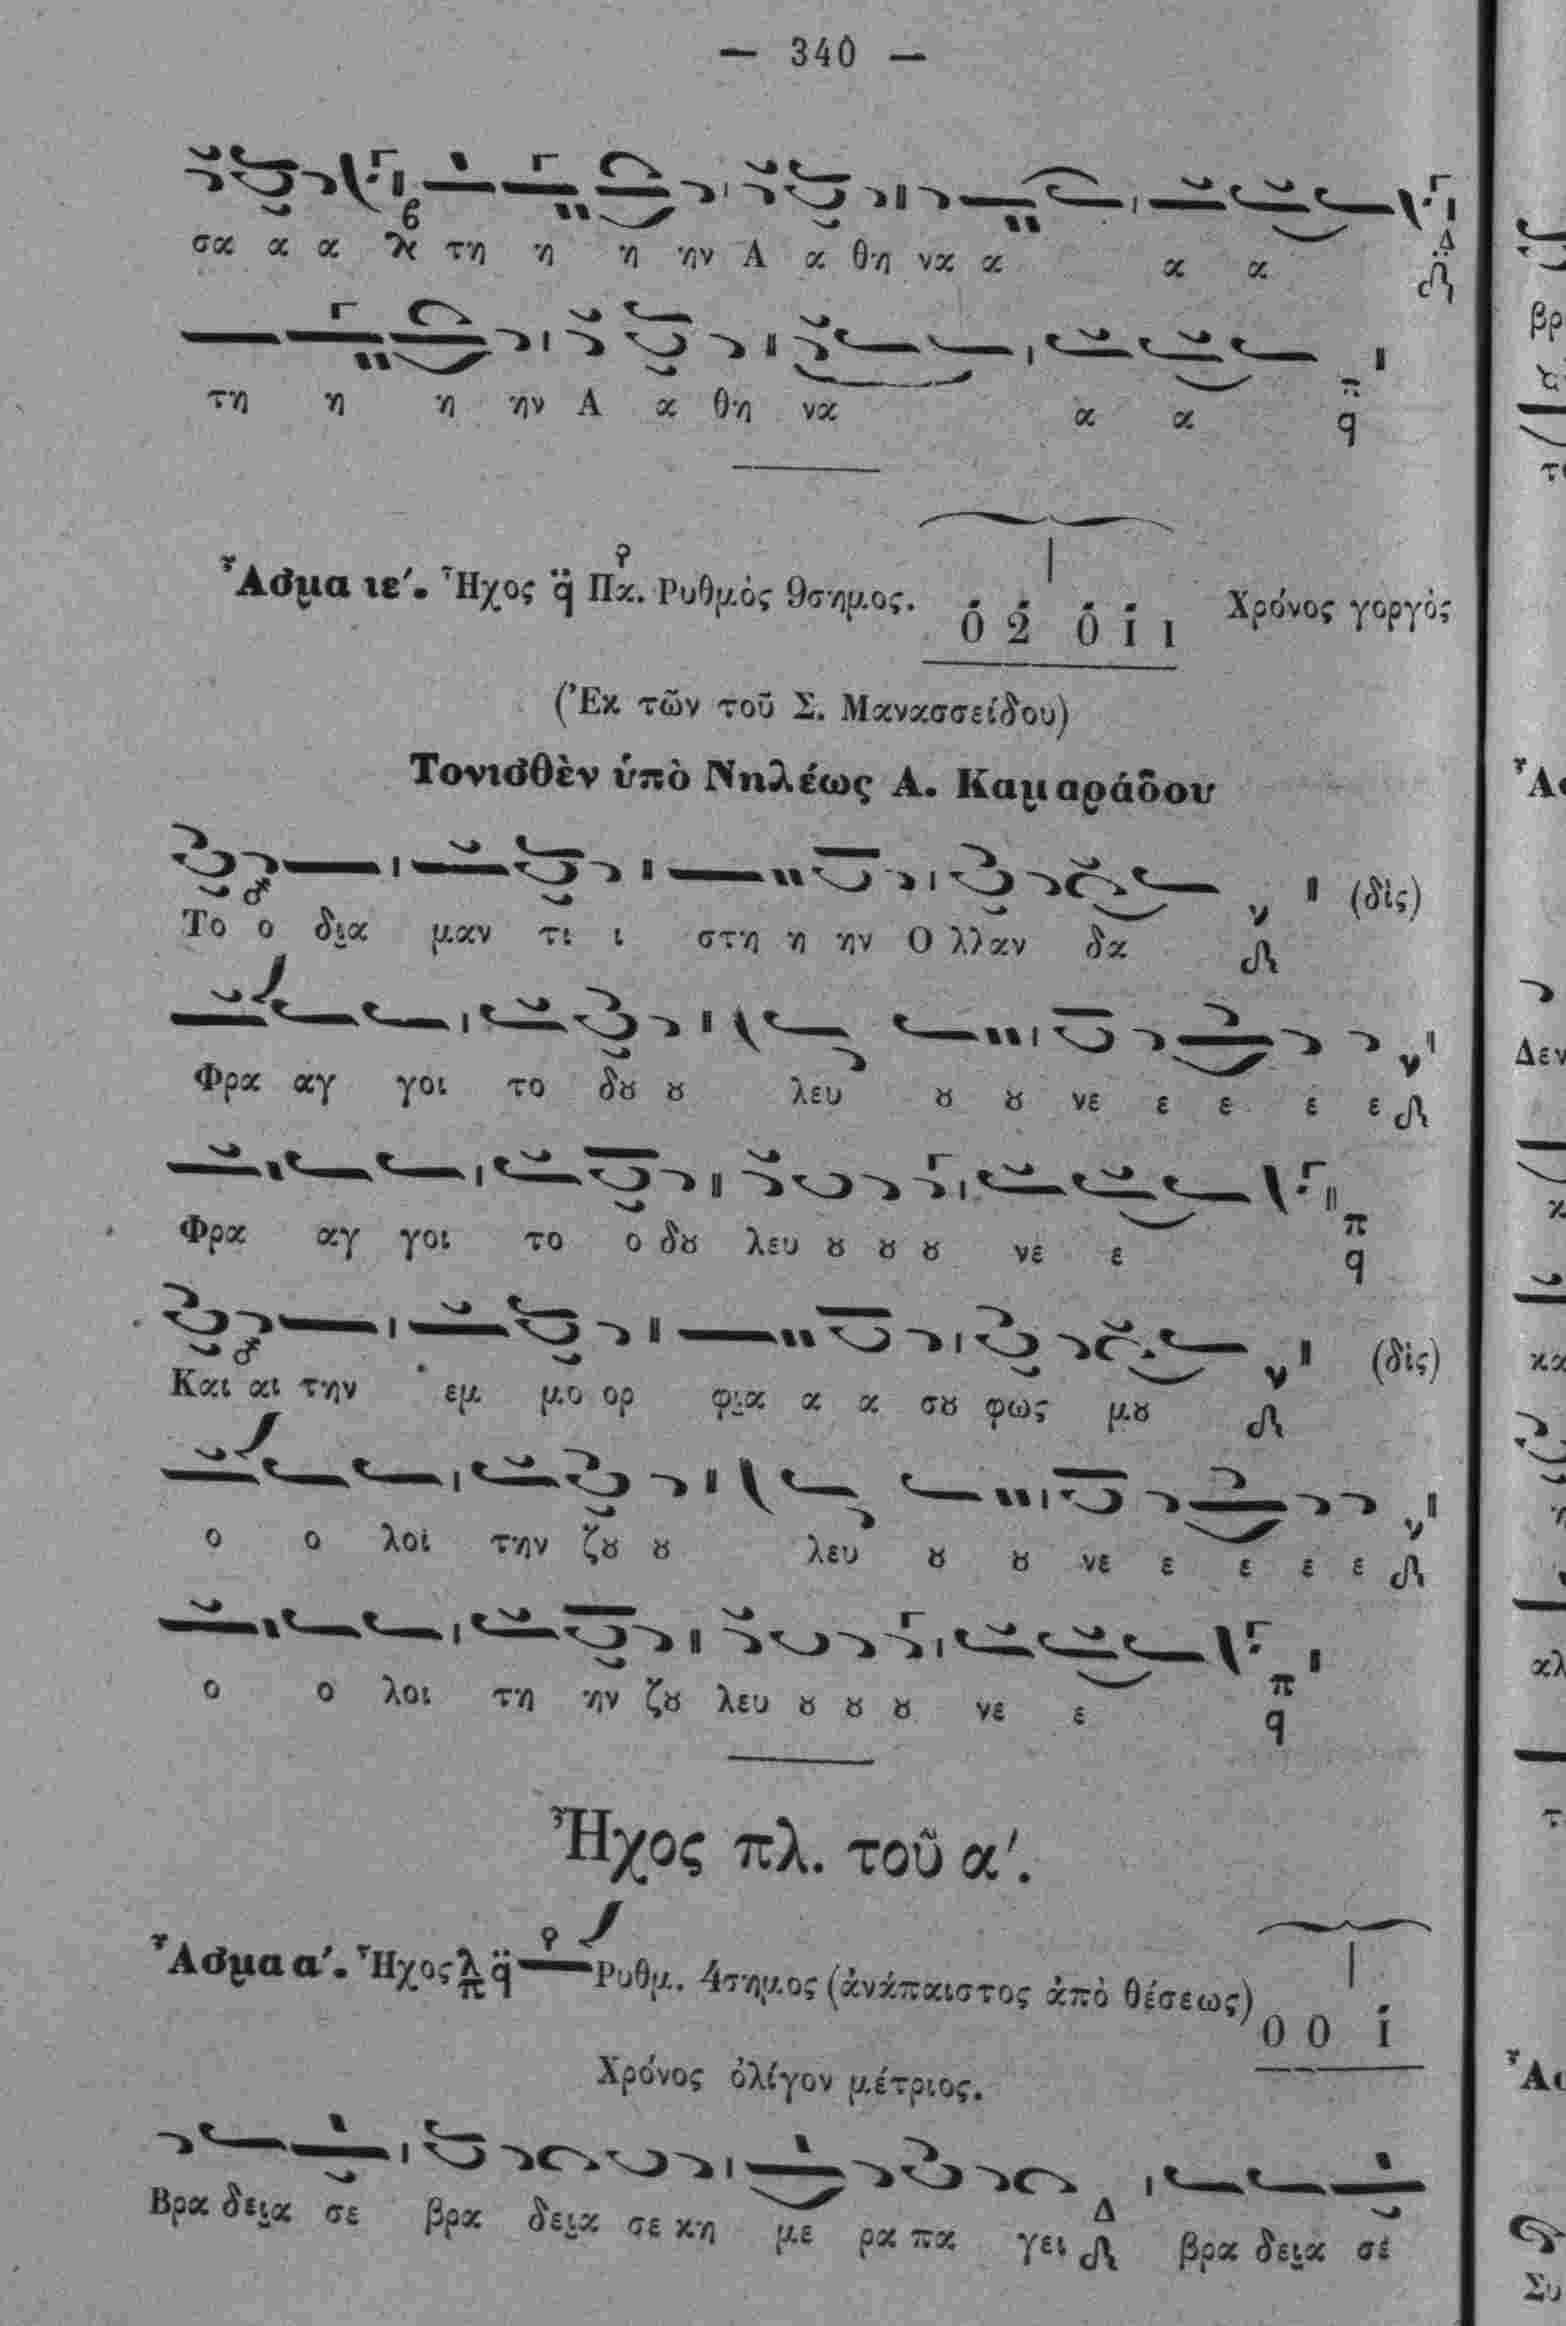 — 340 —
σα α α τη η η ην Α α θη να α α α
τη η η ην Α α θη να α α
Ἆσμα ιε′. Ἦχος Πα. Ῥυθμὸς 9σημος. 0 2 0 1 1 Χρόνος γοργὸς
(Ἐκ τῶν τοῦ Σ. Μανασσείδου)
Τονισθὲν ὑπὸ Νηλέως Α. Καμαράδου
Το ο δια μαν τι ι στη η ην Ο λλαν δα (δὶς)
Φρα αγ γοι το δȣ ȣ λευ ȣ ȣ νε ε ε ε ε
Φρα αγ γοι το ο δȣ λευ ȣ ȣ ȣ νε ε
Και αι την εμ μο ορ φια α α σȣ φως μȣ (δὶς)
ο ο λοι την ζȣ ȣ λευ ȣ ȣ νε ε ε ε ε
ο ο λοι τη ην ζȣ λευ ȣ ȣ ȣ νε ε
Ἦχος πλ. τοῦ α′.
Ἆσμα α′. Ἦχος Ῥυθμ. 4σημος (ἀνάπαιστος ἀπὸ θέσεως) 0 0 1
Χρόνος ὀλίγον μέτριος.
Βρα δεια σε βρα δεια σε κη με ρα πα γει βρα δεια σε